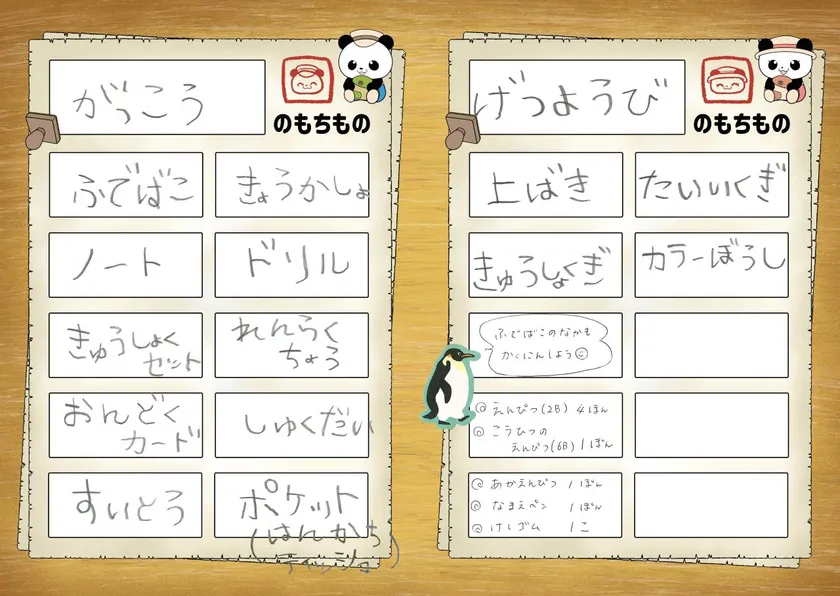 がっこう
のもちもの
ふでばこ
きょうかしょ
ノート
ドリル
きゅうしょく
セット
れんらく
ちょう
おんどく
カード
しゅくだい
すいとう
ポケット
(はんかち
ティッシュ)
げつようび
のもちもの
上ばき
たいいくぎ
きゅうしょくぎ
カラーぼうし
ふでばこのなかも
かくにんしよう
◎ えんぴつ(2B) 4ほん
◎ こうひつの
えんぴつ(6B) 1ぽん
◎ あかえんぴつ 1ぽん
◎ なまえペン 1ぽん
◎ けしゴム 1こ